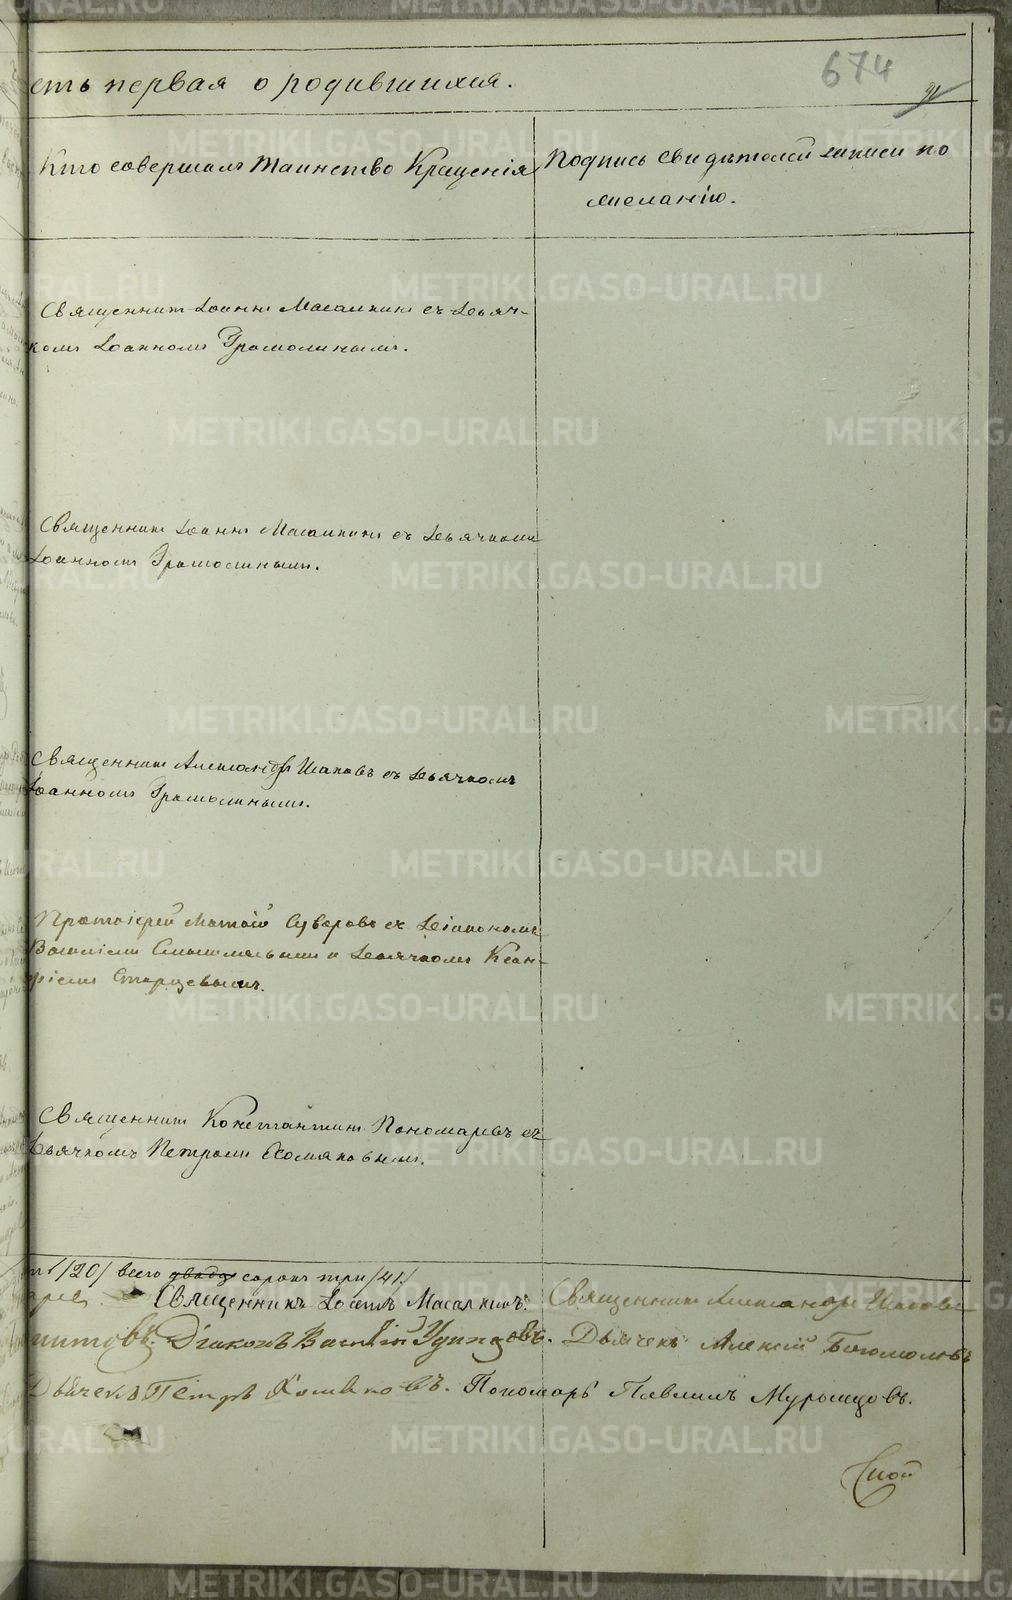 674
сть первая о родившихся.
Кто совершалъ Таинство Крещенія
Подпись свидѣтелей записи по
желанію.
Священникъ Іоаннъ Масалкинъ съ дьяч-
комъ Іоанномъ Грамолинымъ.
Священникъ Іоаннъ Масалкинъ съ дьячкомъ
Іоанномъ Грамолинымъ.
Священникъ Александръ Исаковъ съ дьячкомъ
Іоанномъ Грамолинымъ.
Протоіерей Матѳій Суворовъ съ діакономъ
Василіемъ и дьячкомъ Ксан-
ѳіемъ Старцевымъ.
Священникъ Константинъ Пономаревъ съ
дьячкомъ Петромъ Хомяковымъ.
/20/ всего двадц сорокъ три /41/
Священникъ Іосифъ Масалкинъ. Священникъ Александръ Исаковъ
Діаконъ Василій Удинцовъ. Дьячекъ Алексій Богомоловъ
Дьячекъ Петръ Хомяковъ. Пономарь Павлинъ Муромцовъ.
METRIKI.GASO-URAL.RU